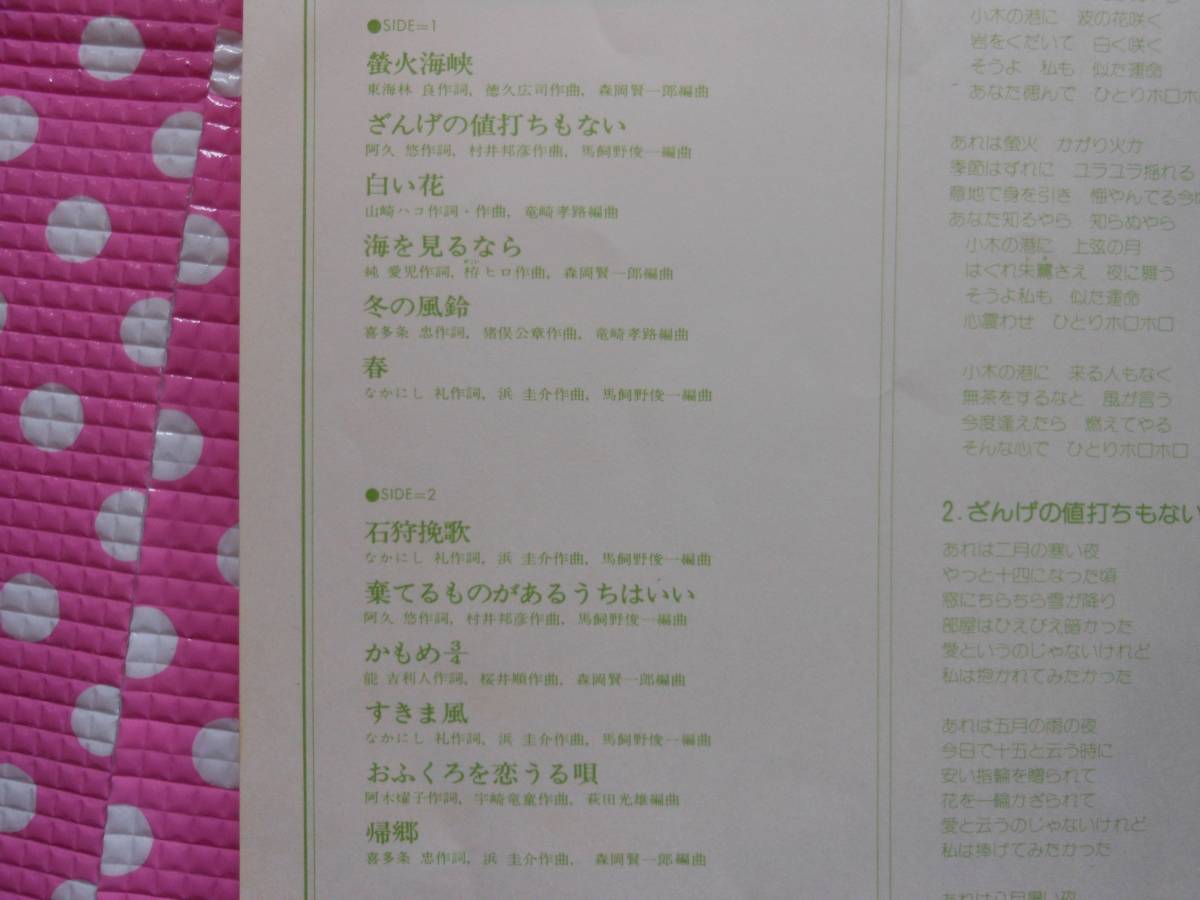 ●SIDE=1
螢火海峡
東海林 良作詞, 徳久広司作曲, 森岡賢一郎編曲
ざんげの値打ちもない
阿久 悠作詞, 村井邦彦作曲, 馬飼野俊一編曲
白い花
山崎ハコ作詞・作曲, 竜崎孝路編曲
海を見るなら
純 愛児作詞, 栫ヒロ作曲, 森岡賢一郎編曲
冬の風鈴
喜多条 忠作詞, 猪俣公章作曲, 竜崎孝路編曲
春
なかにし 礼作詞, 浜 圭介作曲, 馬飼野俊一編曲
●SIDE=2
石狩挽歌
なかにし 礼作詞, 浜 圭介作曲, 馬飼野俊一編曲
棄てるものがあるうちはいい
阿久 悠作詞, 村井邦彦作曲, 馬飼野俊一編曲
かもめ3/4
能 吉利人作詞, 桜井順作曲, 森岡賢一郎編曲
すきま風
なかにし 礼作詞, 浜 圭介作曲, 馬飼野俊一編曲
おふくろを恋うる唄
阿木燿子作詞, 宇崎竜童作曲, 萩田光雄編曲
帰郷
喜多条 忠作詞, 浜 圭介作曲, 森岡賢一郎編曲
小木の港に 波の花咲く
岩をくだいて 白く咲く
そうよ 私も 似た運命
あなた偲んで ひとりホロホ
あれは螢火 かがり火か
季節はずれに ユラユラ揺れる
意地で身を引き 悔やんでる今
あなた知るやら 知らぬやら
小木の港に 上弦の月
はぐれ朱鷺さえ 夜に舞う
そうよ私も 似た運命
心震わせ ひとりホロホロ
小木の港に 来る人もなく
無茶をするなと 風が言う
今度逢えたら 燃えてやる
そんな心で ひとりホロホロ
2.ざんげの値打ちもない
あれは二月の寒い夜
やっと十四になった頃
窓にちらちら雪が降り
部屋はひえびえ暗かった
愛というのじゃないけれど
私は抱かれてみたかった
あれは五月の雨の夜
今日で十五と云う時に
安い指輪を贈られて
花を一輪かざられて
愛と云うのじゃないけれど
私は捧げてみたかった
あれは八月暑い夜